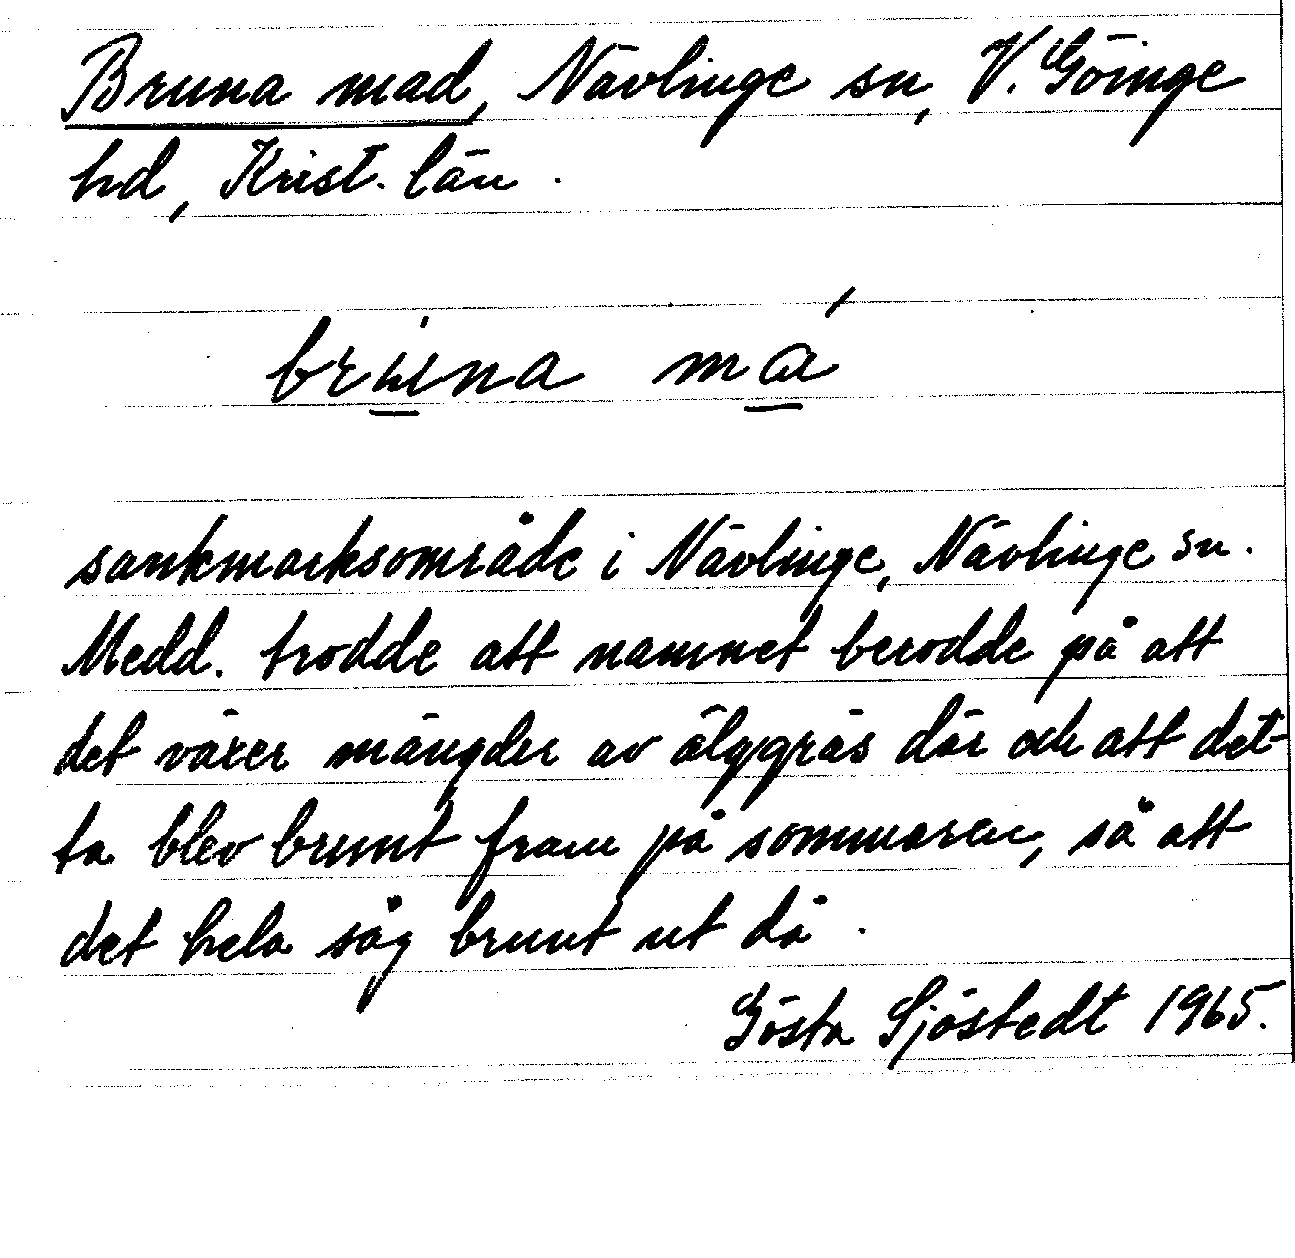 Bruna mad, Nävlinge sn, V. Göinge
hd, Krist. län.
bruna må
sankmarksområde i Nävlinge, Nävlinge sn.
Medd. trodde att namnet berodde på att
det växer mängder av älggräs där och att det-
ta blev brunt fram på sommaren, så att
det hela såg brunt ut då.
Gösta Sjöstedt 1965.